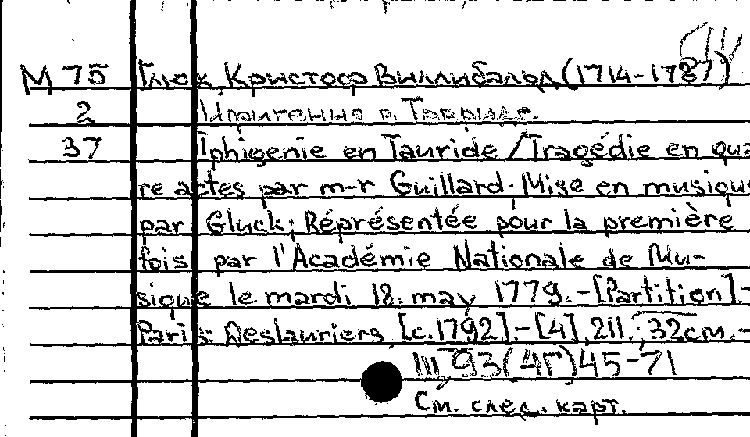 М 75 Глюк, Кристоф Виллибальд (1714-1787)
2 Ифигения в Тавриде.
37 Iphigenie en Tauride / Tragédie en qua
re actes par m-r Guillard. Mise en musique
par Gluck; Réprésentée pour la première
fois par l'Académie Nationale de Mu-
sique le mardi 18. may 1779. - [Partition] -
Paris: Deslauriers, [c.1792]. - [4], 211.; 32см. -
III, 93(4Г)45-71
См. след. карт.